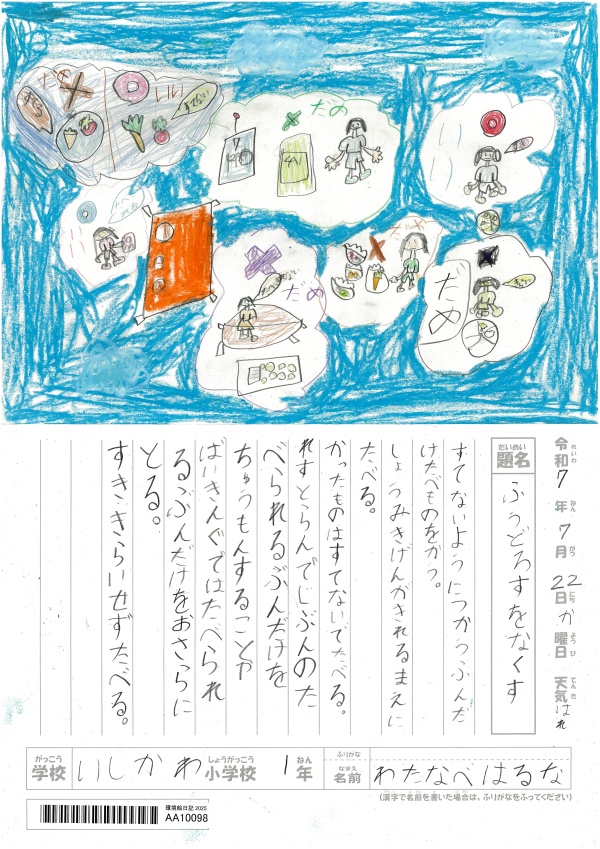 だめ
いい
すてる
すてない
だめ
いい
いい
だめ
だめ
だめ
れいわ
令和7年7月22日か曜日 天気はれ
ねん
がつ
にち
ようび
てんき
だいめい
題名
ふうどろすをなくす
すてないようにつかうぶんだ
けたべものをかう。
しょうみきげんがきれるまえに
たべる。
かったものはすてないでたべる。
れすとらんでじぶんのた
べられるぶんだけを
ちゅうもんすることか
ばいきんぐではたべられ
るぶんだけをおさらに
とる。
すききらいせずたべる。
がっこう
学校
いしかわ小学校
しょうがっこう
1年
ねん
ふりがな
なまえ
名前
わたなべはるな
(漢字で名前を書いた場合は、ふりがなをふってください)
環境絵日記2025
AA10098